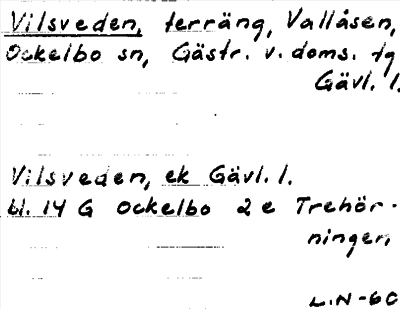 Vilsveden, terräng, Vallåsen,
Ockelbo sn, Gästr. v. doms. tg
Gävl. l.
Vilsveden, ek Gävl. l.
bl. 14 G Ockelbo 2 e Trehör-
ningen
L.N-60